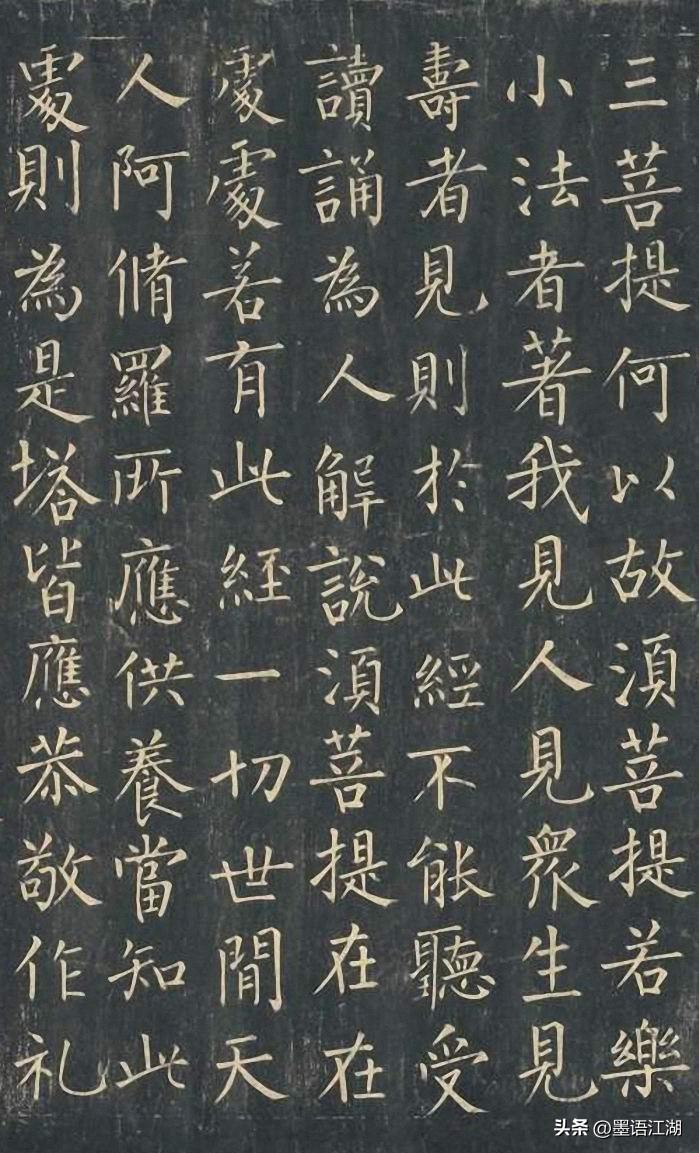 三菩提何以故須菩提若樂
小法者著我見人見眾生見
壽者見則於此經不能聽受
讀誦為人解說須菩提在在
處處若有此經一切世間天
人阿脩羅所應供養當知此
處則為是塔皆應恭敬作礼
头条 @墨语江湖